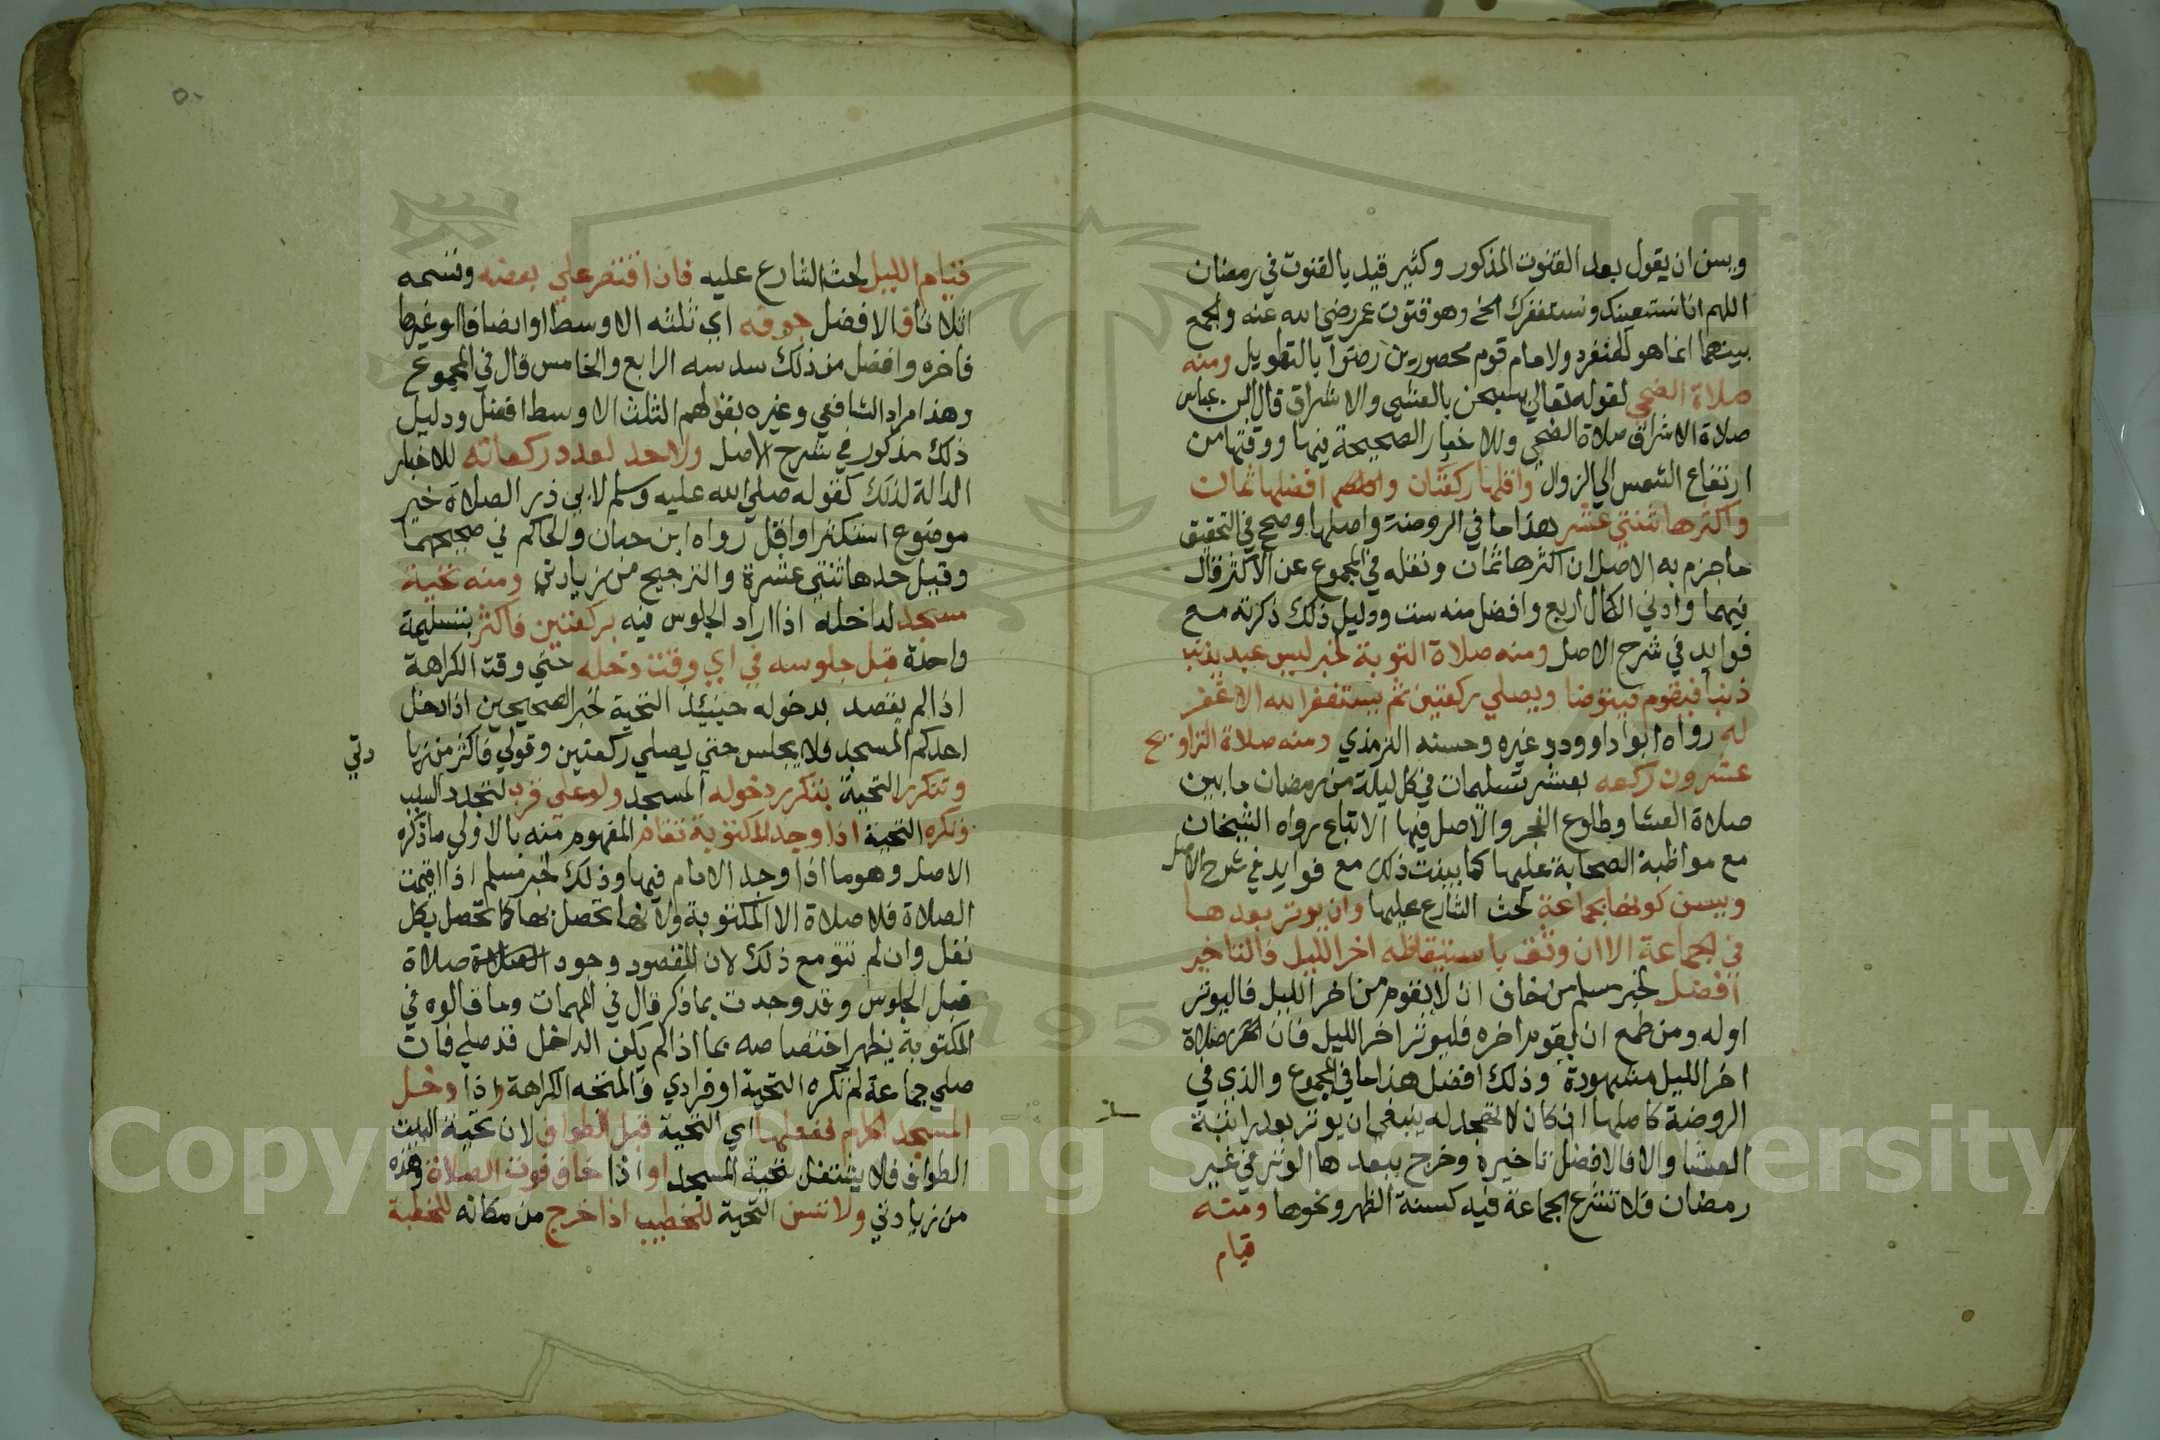 ويسن ان يقول بعد القنوت المذكور وكثير قيد بالقنوت في رمضان
اللهم انا نستعينك ونستغفرك الخ وهو قنوت عمر رضي الله عنه والجمع
بينهما انما هو للمنفرد ولامام قوم محصورين رضوا بالتطويل ومنه
صلاة الضحي لقوله تعالي يسبحن بالعشي والاشراق قال ابن عباس
صلاة الاشراق صلاة الضحي وللاخبار الصحيحة فيها ووقتها من
ارتفاع الشمس الي الزوال واقلها ركعتان وافضلها ثمان
واكثرها ثنتي عشر هذا ما في الروضة واصلها وصح في التحقيق
ما جزم به الاصل ان اكثرها ثمان ونقله في المجموع عن الاكثر قال
فيهما وادني الكمال اربع وافضل منه ست ودليل ذلك ذكرته مع
فوايد في شرح الاصل ومنه صلاة التوبة لخبر ليس عبد يذنب
ذنبا فيقوم فيتوضا ويصلي ركعتين ثم يستغفر الله الا غفر
له رواه ابو داوود وغيره وحسنه الترمذي ومنه صلاة التراويح
عشرون ركعه بعشر تسليمات في كل ليلة من رمضان ما بين
صلاة العشا وطلوع الفجر والاصل فيها الاتباع رواه الشيخان
مع مواظبة الصحابة عليها كما بينت ذلك مع فوايد في شرح الاصل
ويسن كونها بجماعة لحث الشارع عليها وان يوتر بعدها
في الجماعة الا ان وثق باستيقاظه اخر الليل فالتاخير
افضل لخبر مسلم من خاف ان لا يقوم من اخر الليل فاليوتر
اوله ومن طمع ان يقوم اخره فليوتر اخر الليل فان صلاة
اخر الليل مشهودة وذلك افضل هذا ما في المجموع والذي في
الروضة كاصلها ان كان لا تهجد له ينبغي ان يوتر بعد راتبة
العشا والا فالافضل تاخيره وخرج ببعدها الوتر في غير
رمضان فلا تشرع الجماعة فيه كسنة الظهر ونحوها ومنه
قيام
٥٠
قيام الليل لحث الشارع عليه فان اقتصر علي بعضه وقسمه
اثلاثا فالافضل جوفه اي ثلثه الاوسط او انصافا او غيرها
فاخره وافضل من ذلك سدسه الرابع والخامس قال في المجموع
وهذا مراد الشافعي وغيره بقولهم الثلث الاوسط افضل ودليل
ذلك مذكور في شرح الاصل ولا حد لعدد ركعاته للاخبار
الدالة لذلك كقوله صلي الله عليه وسلم لابي ذر الصلاة خير
موضوع استكثر او اقل رواه ابن حبان والحاكم في صحيحهما
وقيل حدها ثنتي عشرة والترجيح من زيادتي ومنه تحية
مسجد لداخله اذا اراد الجلوس فيه بركعتين فاكثر بتسليمة
واحدة قبل جلوسه في اي وقت دخله حتي وقت الكراهة
اذا لم يقصد بدخوله حينئذ التحية لخبر الصحيحين اذا دخل
احدكم المسجد فلا يجلس حتي يصلي ركعتين وقولي فاكثر من زيا
دتي
وتتكرر التحية بتكرر دخوله المسجد ولو علي قرب لتجدد السبب
وتكره التحية اذا وجد المكتوبة تقام المفهوم منه بالاولي ما ذكره
الاصل وهو ما اذا وجد الامام فيها وذلك لخبر مسلم اذا اقيمت
الصلاة فلا صلاة الا المكتوبة ولانها تحصل بها كما تحصل بكل
نفل وان لم تنو مع ذلك لان المقصود وجود الصلاة صلاة
قبل الجلوس وقد وجدت بما ذكر قال في المهمات وما قالوه في
المكتوبة يظهر اختصاصه بما اذا لم يكن الداخل قد صلي فان
صلي جماعة لم تكره التحية او فرادي فالمتجه الكراهة واذا دخل
المسجد الحرام ففعلها اي التحية قبل الطواف لان تحية البيت
الطواف فلا يشتغل بتحية المسجد او اذا خاف فوت الصلاة وهذه
من زيادتي ولا تسن التحية للخطيب اذا خرج من مكانه للخطبة
Copyright © King Saud University